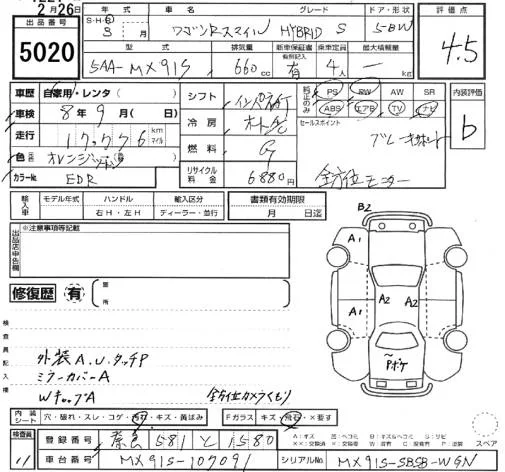 2月26日
出品番号
5020
年式 車名 グレード ドア・形状
S・H・R
3 月 ワゴンRスマイル HYBRID S 5-BW
型式 排気量 新車保証書 乗車定員 最大積載量
5AA-MX91S 660cc 有 4人 - kg
評価点
4.5
車歴 自家用・レンタ( )
車検 8年9月( 日)
走行 17,776 km マイル
色 オレンジ
カラーNo. EDR
シフト インパネAT
冷房 オートAC
燃料 G
リサイクル料金 6880円
純正のみ PS PW AW SR
ABS エアB TV ナビ
セールスポイント
ブレーキサポート
全方位モニター
内装評価
b
輸入車 モデル年式 ハンドル 輸入区分
右H・左H ディーラー・並行
書類有効期限
月 日迄
出品店申告欄
※注意事項等記載
修復歴 有
箇所
検査員記入欄
外装A.U.タッチP
ミラーカバーA
WキョップA
全方位カメラくもり
B2
A1
A1
A2
A2
Pボケ
内装シート 穴・破れ・スレ・コゲ・汚れ・キズ・黄ばみ
Fガラス キズ・飛石・×要す
検査員
11
登録番号 奈良 581 と 1580
車台番号 MX91S-107091
シリアルNo. MX91S-SBSB-WGN
スペア